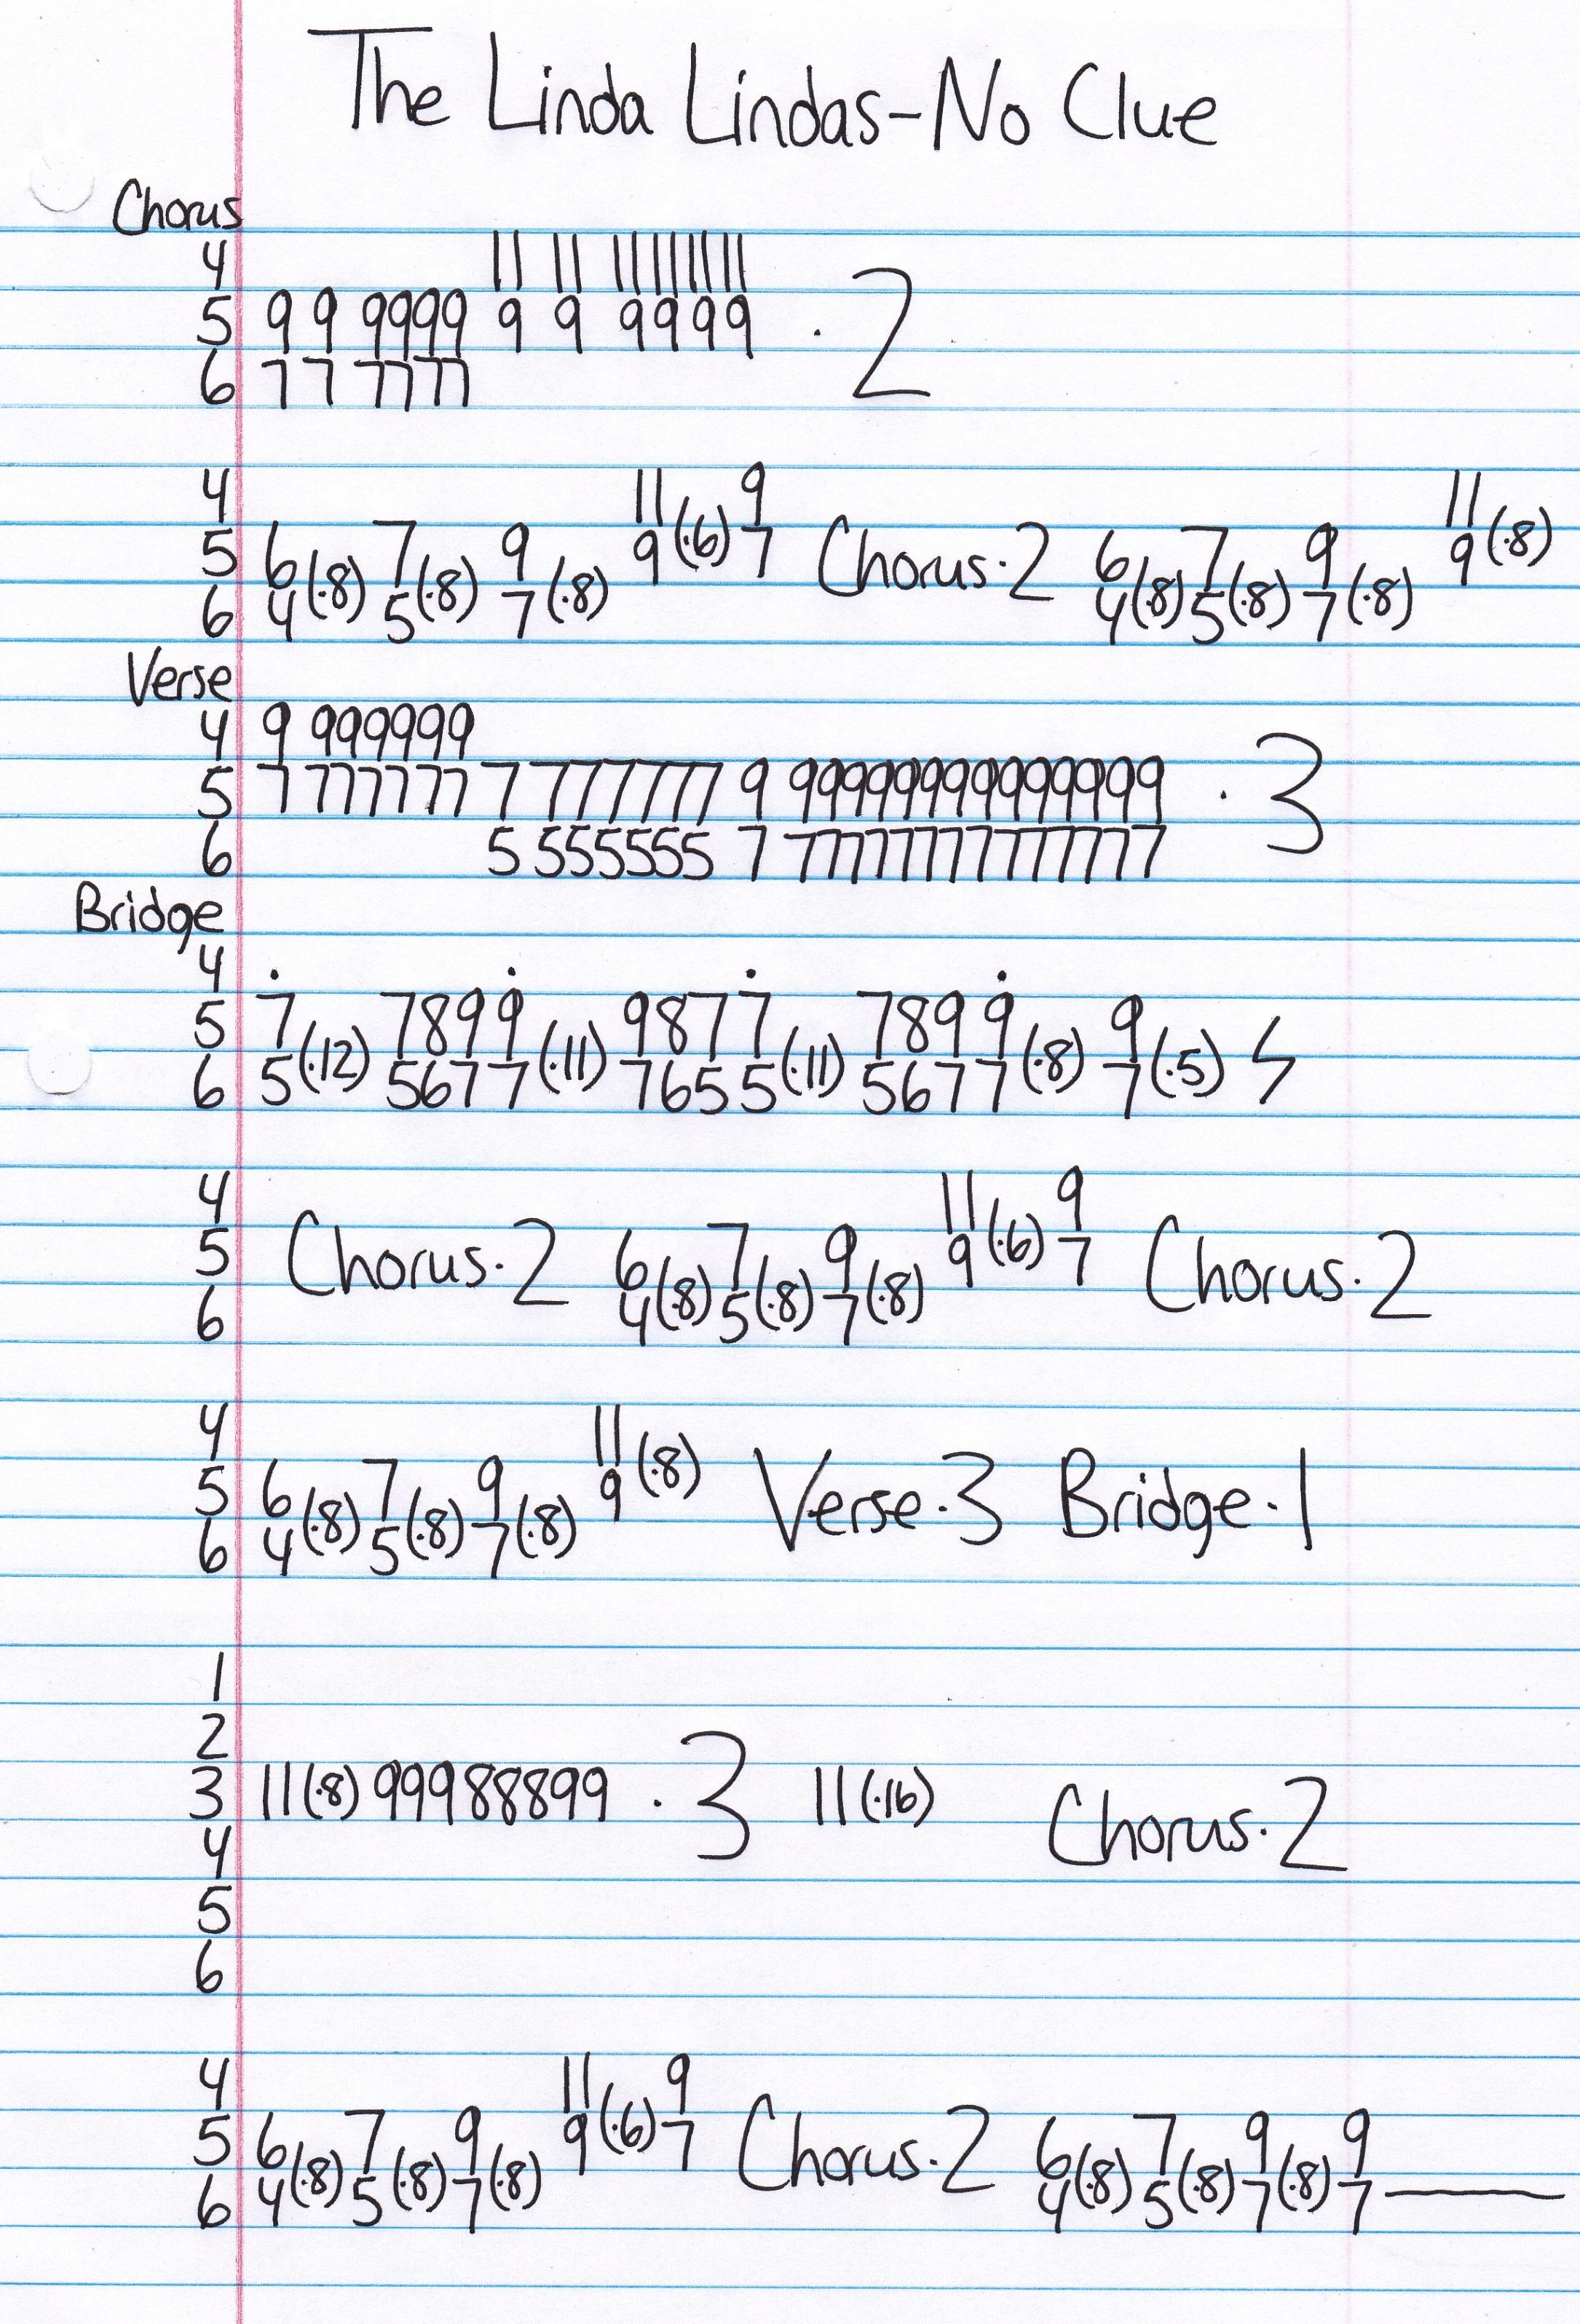 The Linda Lindas-No Clue
Chorus
4 11 11 11111111
5 9 9 9999 9 9 9999 · 2
6 7 7 7777
4 11(·6) 9 11(·8)
5 6(·8) 7(·8) 9(·8) 9 7 Chorus·2 6(·8) 7(·8) 9(·8) 9
6 4 5 7 4 5 7
Verse
4 9 999999
5 7 777777 7 777777 9 99999999999999 · 3
6 5 555555 7 77777777777777
Bridge
4 . . . .
5 7(·12) 7899(·11) 9877(·11) 7899(·8) 9(·5) 𝄽
6 5 5677 7655 5677 7
4 11(·6) 9
5 Chorus·2 6(·8) 7(·8) 9(·8) 9 7 Chorus·2
6 4 5 7
4 11(·8)
5 6(·8) 7(·8) 9(·8) 9 Verse·3 Bridge·1
6 4 5 7
1
2
3 11(·8) 99988899 · 3 11(·16) Chorus·2
4
5
6
4 11(·6) 9
5 6(·8) 7(·8) 9(·8) 9 7 Chorus·2 6(·8) 7(·8) 9(·8) 9
6 4 5 7 4 5 7 7